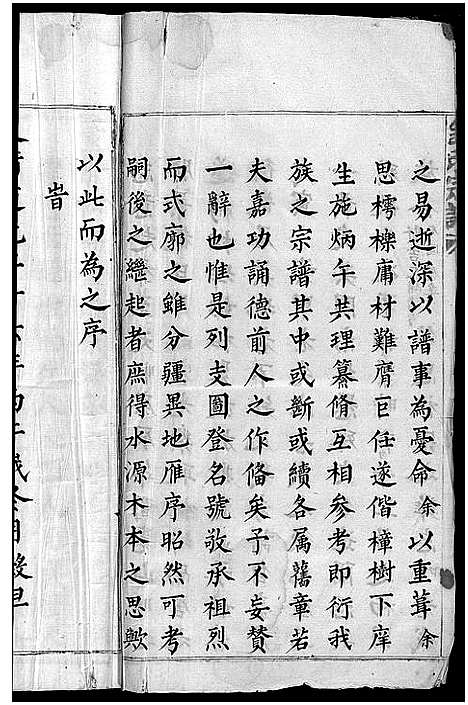 之易逝深以譜事為憂命余以重葺余
思樗櫟庸材難膺巨任遂偕樟樹下庠
生施炳午共理纂脩互相參考即衍我
族之宗譜其中或斷或續各属舊章若
夫嘉功誦德前人之作俻矣予不妄賛
一辭也惟是列支圖登名號敬承祖烈
而式廓之雖分疆異地雁序昭然可考
嗣後之繼起者庶得水源木本之思歟
以此而為之序
旹
年丙午歲
月穀旦